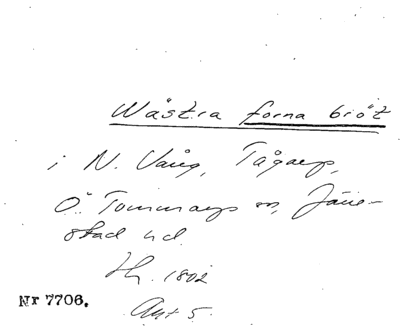 Wästra forna bröt
i N. Vång, Tågarp,
Ö. Tommarps sn, Järre-
stad hd.
Hh. 1802
Nr 7706.
Akt 5.